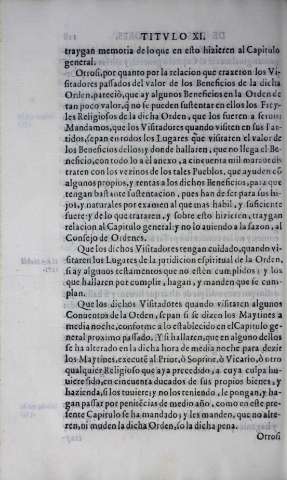 TITVLO XI.
traygan memoria de lo que en esto hizieren al Capitulo
general.
Otrosi, por quanto por la relacion que traxeron los Vi-
sitadores passados del valor de los Beneficios de la dicha
Orden, pareciò, que ay algunos Beneficios en la Orden de
tan poco valor, q̃ no se pueden sustentar en ellos los Frey-
les Religiosos de la dicha Orden, que los fueren a seruir:
Mandamos, que los Visitadores quando visiten en sus Par-
tidos, sepan en todos los Lugares que visitaren el valor de
los Beneficios dellos: y donde hallaren, que no llega el Be-
neficio, con todo lo a èl anexo, a cincuenta mil marauedis
traten con los vezinos de los tales Pueblos, que ayuden cõ
algunos propios, y rentas a los dichos Beneficios, para que
tengan bastante sustentacion, pues han de ser para sus hi-
jos, y naturales por examen al que mas habil, y suficiente
fuere: y de lo que trataren, y sobre esto hizieren, traygan
relacion al Capitulo general: y no lo auiendo a la sazon, al
Consejo de Ordenes.
Que los dichos Visitadores tengan cuidado, quando vi-
sitaren los Lugares de la juridicion espiritual de la Orden,
si ay algunos testamentos que no estèn cumplidos: y los
que hallaren por cumplir, hagan, y manden que se cum-
plan.
Que los dichos Visitadores quando visitaren algunos
Conuentos de la Orden, sepan si se dizen los Maytines a
media noche, conforme a lo establecido en el Capitulo ge-
neral proximo passado. Y si hallaren, que en alguno dellos
se ha alterado en la dicha hora de media noche para dezir
los Maytines, executẽ al Prior, ò Soprior, ò Vicario, ò otro
qualquier Religioso que aya precedido, a cuya culpa hu-
uiere sido, en cincuenta ducados de sus propios bienes, y
hazienda, si los tuuiere: y no los teniendo, le pongan, y ha-
gan passar por penitẽcias de medio año, como en este pre-
sente Capitulo se ha mandado: y les manden, que no alte-
ren, ni muden la dicha Orden, so la dicha pena.
Otrosi